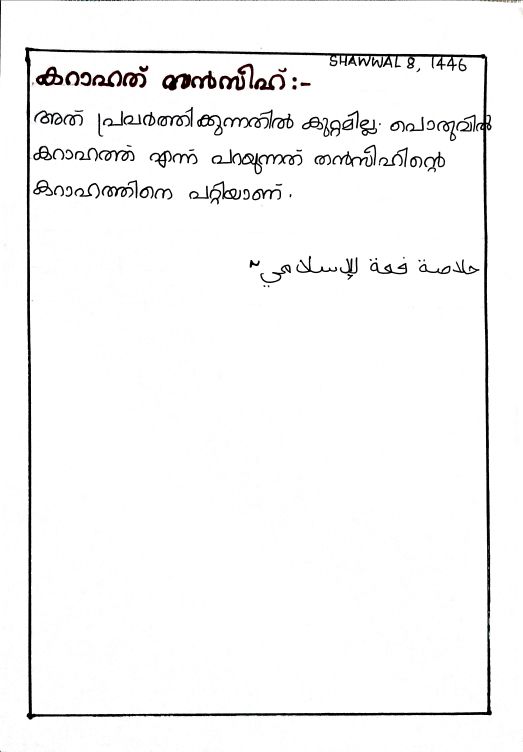 SHAWWAL 8, 1446
കറാഹത് തൻസീഹ് :-
അത് പ്രവർത്തിക്കുന്നതിൽ കുറ്റമില്ല. പൊതുവിൽ
കറാഹത്ത് എന്ന് പറയുന്നത് തൻസീഹിന്റെ
കറാഹത്തിനെ പറ്റിയാണ്.
خلاصة فقة للإسلامي~